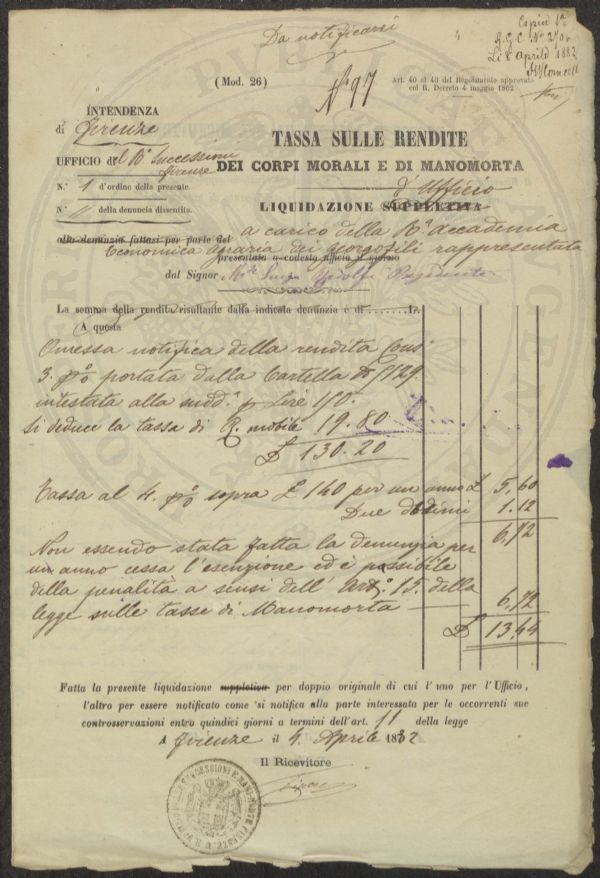 Da notificarsi
Copia 1ª
A.G.C. Nº
Li 8 Aprile 1882
(Mod. 26)
Nº 97
Art. 40 al 43 del Regolamento approvato
col R. Decreto 4 maggio 1862
INTENDENZA
di Firenze
UFFICIO del Rº Successioni
Firenze
N.º 1 d'ordine della presente.
N.º 11 della denuncia dissentita.
TASSA SULLE RENDITE
DEI CORPI MORALI E DI MANOMORTA
d'Ufficio
LIQUIDAZIONE SUPPLETIVA
a carico della Rª accademia
alla denunzia fattasi per parte del
Economica agraria dei georgofili rappresentata
presentata a codesto ufficio il giorno
dal Signor
La somma della rendita risultante dalla indicata denunzia è di L.
A questa
Omessa notifica della rendita Cons
3. p%o portata dalla Cartella
intestata alla sudd.ª p Lire
si deduce la tassa di R. mobile 19.80
£ 130.20
Tassa al 4. p%o sopra £ 140 per un anno £ 5,60
Due decimi 1.12
6,72
Non essendo stata fatta la denunzia per
un anno cessa l'esenzione ed è passibile
della penalità a sensi dell' Art.º 15. della
legge sulle tasse di Manomorta 6,72
£ 13,44
Fatta la presente liquidazione suppletiva per doppio originale di cui l'uno per l'Ufficio,
l'altro per essere notificato come si notifica alla parte interessata per le occorrenti sue
controsservazioni entro quindici giorni a termini dell'art. 11 della legge
A Firenze il 4. Aprile 1882
Il Ricevitore